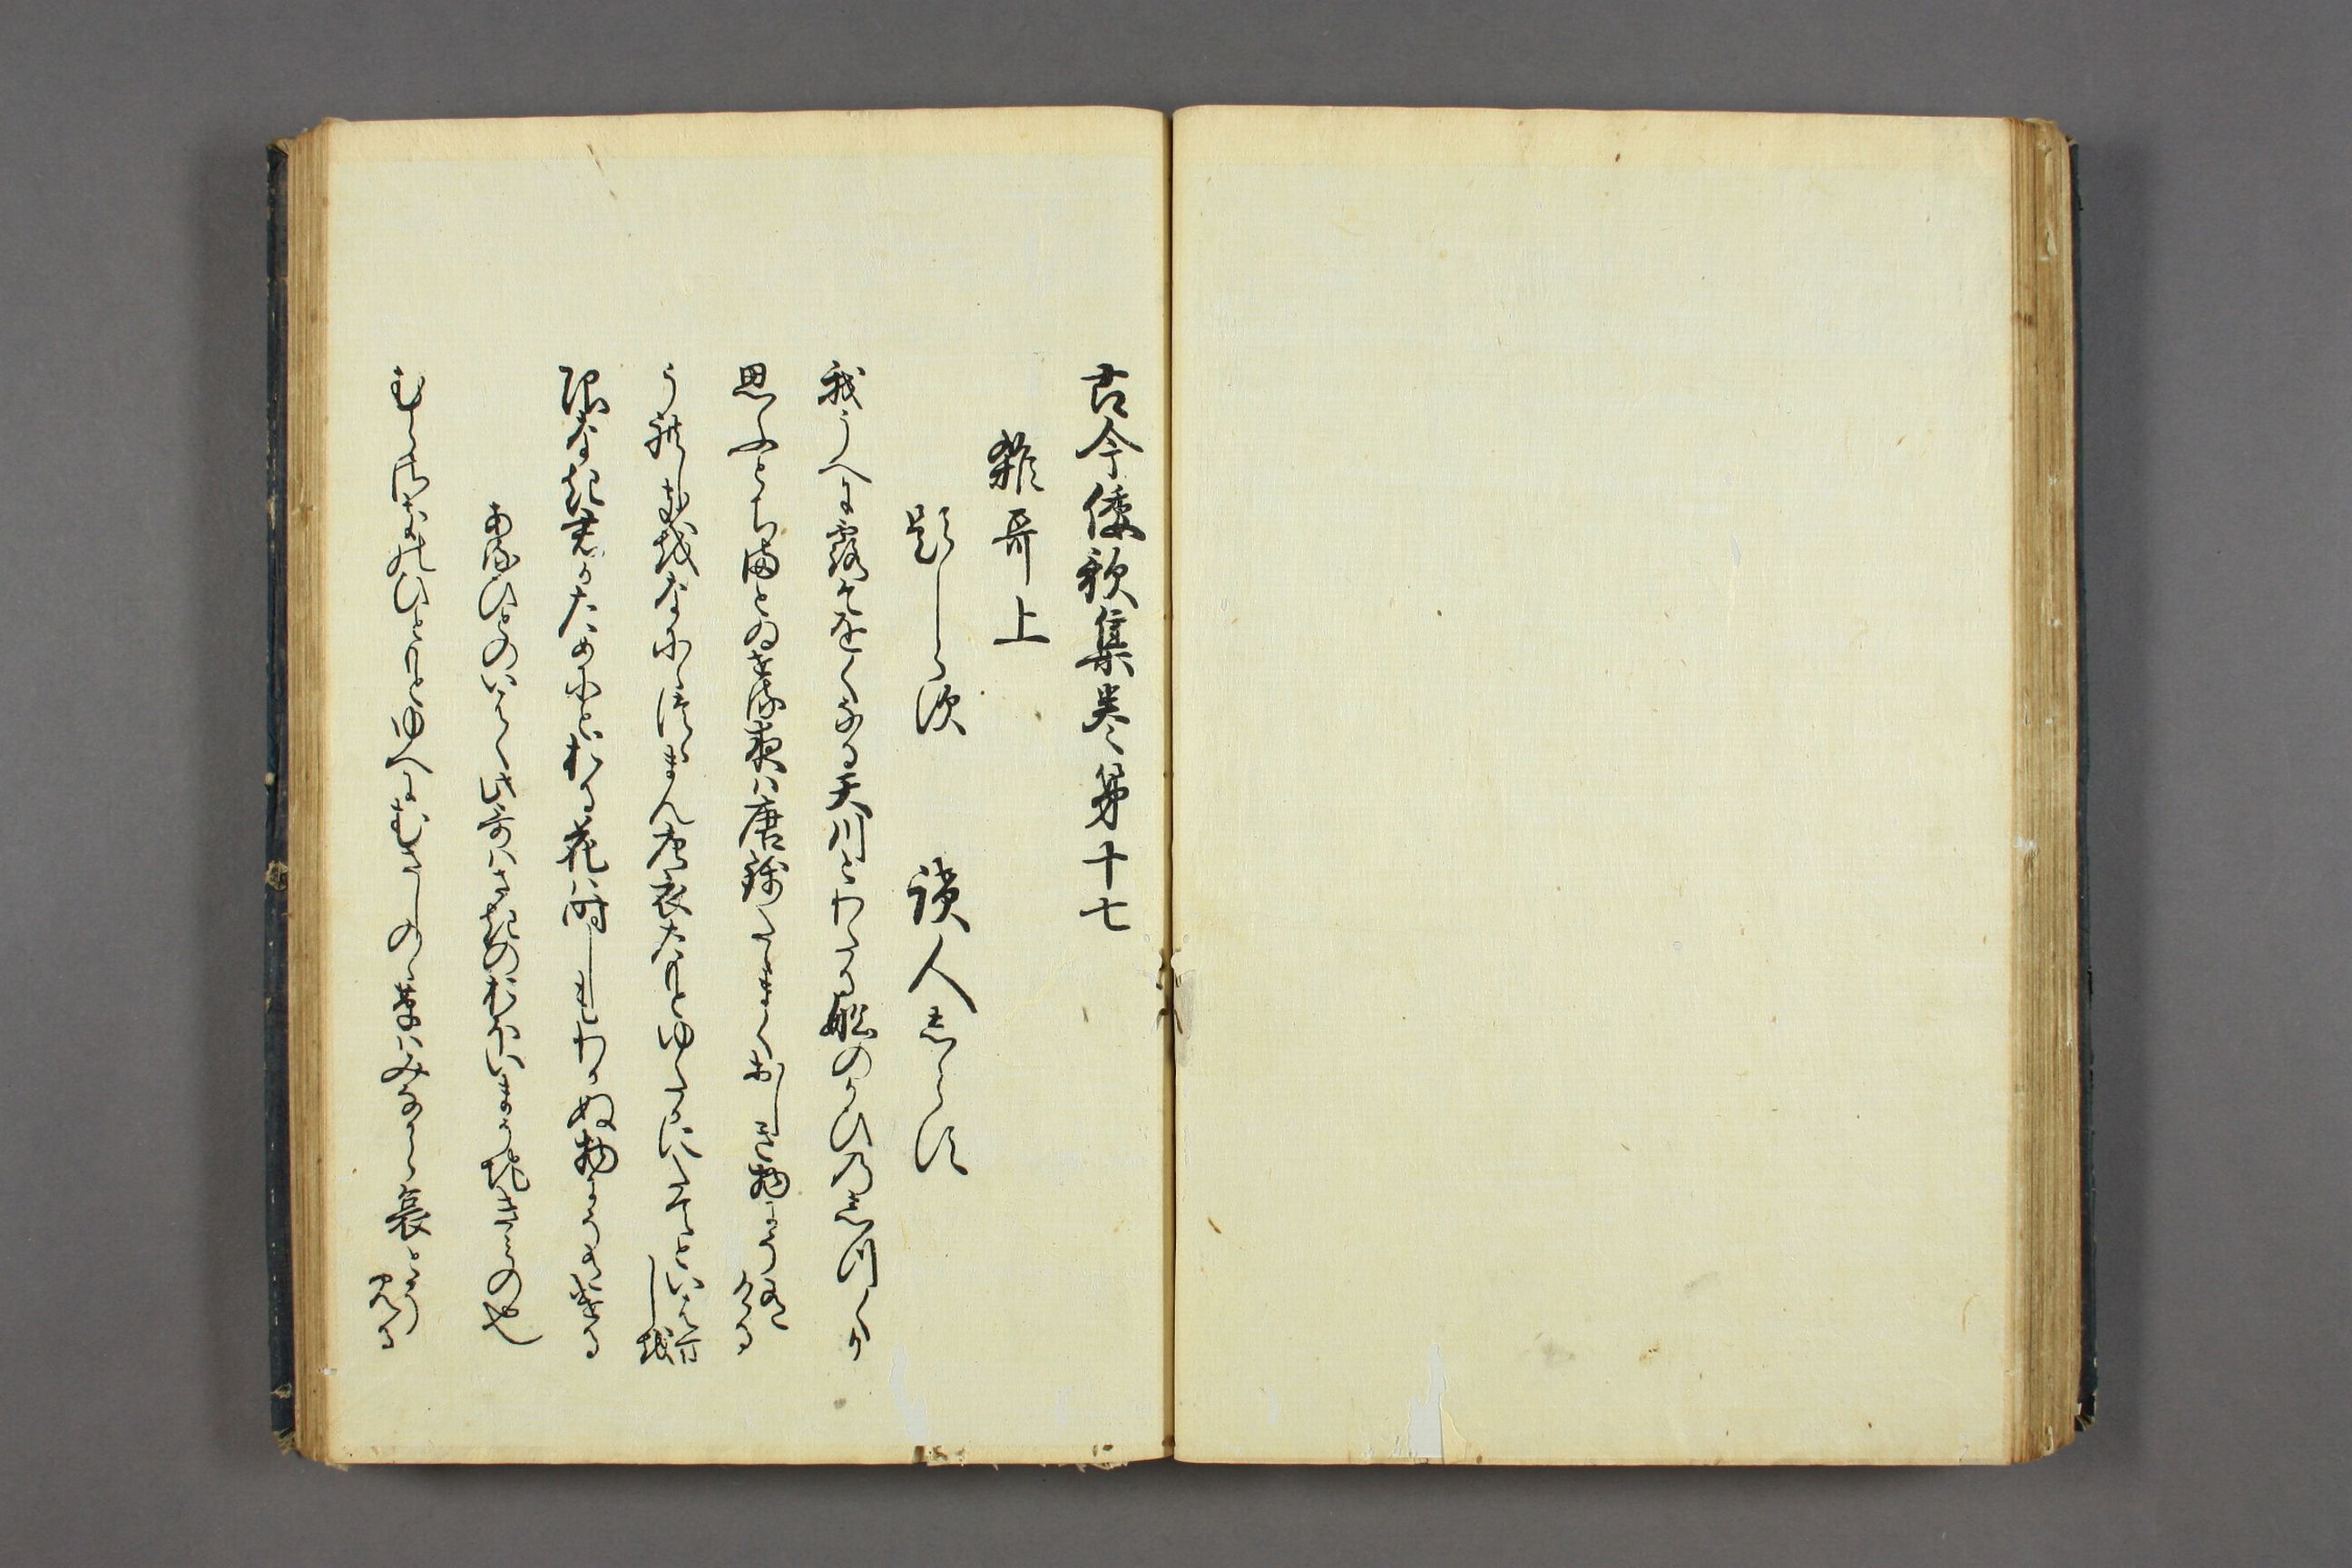 古今倭歌集巻第十七
雑哥上
題しらす　読人しらす
我うへに露そをくなる天川とわたる舩のかひのしつくか
思ふとちまとゐせる夜は唐錦たたまくおしき物にそありける
うれしきをなにゝつゝまん唐衣たもとゆたかにたてといはましを
限なき君かためにとおる花は時しもわかぬ物にそ有ける
ある人のいはく此哥はさきのおほいまうち君の也
むらさきのひともとゆへにむさしのゝ草はみなから哀とそ見る